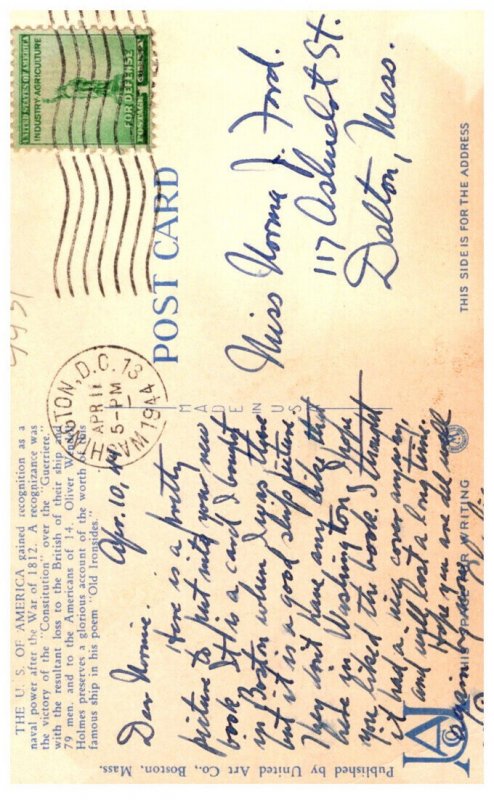 THE U. S. OF AMERICA gained recognition as a
naval power after the War of 1812. A recognizance was
the victory of the "Constitution" over the "Guerriere,"
with the resultant loss to the British of their ship and
79 men, and to the Americans of 14. Oliver Wendell
Holmes preserves a glorious account of the worth of this
famous ship in his poem "Old Ironsides."
Apr. 10, '44
Dear Normie.
Here is a pretty
picture to put into your new
book. It is a card I bought
in Boston when I was there
but it is a good ship picture.
They don't have any like that
here in Washington. I hope
you liked the book. I thought
it had a nice cover anyway
and will last a long time.
Hope you are all well
THIS SPACE FOR WRITING
Published by United Art Co., Boston, Mass.
UA
Co
MADE IN U S
POST CARD
WASHINGTON, D.C. 13
APR 11
5-PM
1944
UNITED STATES OF AMERICA
INDUSTRY-AGRICULTURE
FOR DEFENSE
POSTAGE 1
4431
Miss Norma J. Ford.
117 Ashuelot St.
Dalton, Mass.
THIS SIDE IS FOR THE ADDRESS